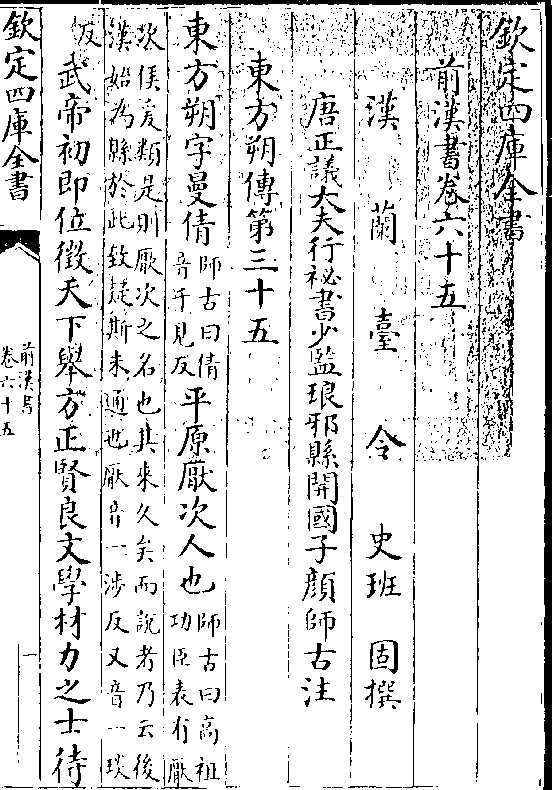 欽定四庫全書
前漢書卷六十五
漢蘭臺令史班固撰
唐正議大夫行祕書少監琅邪縣開國子顔師古注
東方朔傳第三十五
東方朔字曼倩師古曰倩音千見反平原厭次人也師古曰高祖功臣表有厭
次侯爰類是則厭次之名也其來久矣而說者乃云後漢始為縣於此致疑斯未通也厭音一涉反又音一琰
反武帝初即位徵天下舉方正賢良文學材力之士待
欽定四庫全書
前漢書
卷六十五
一